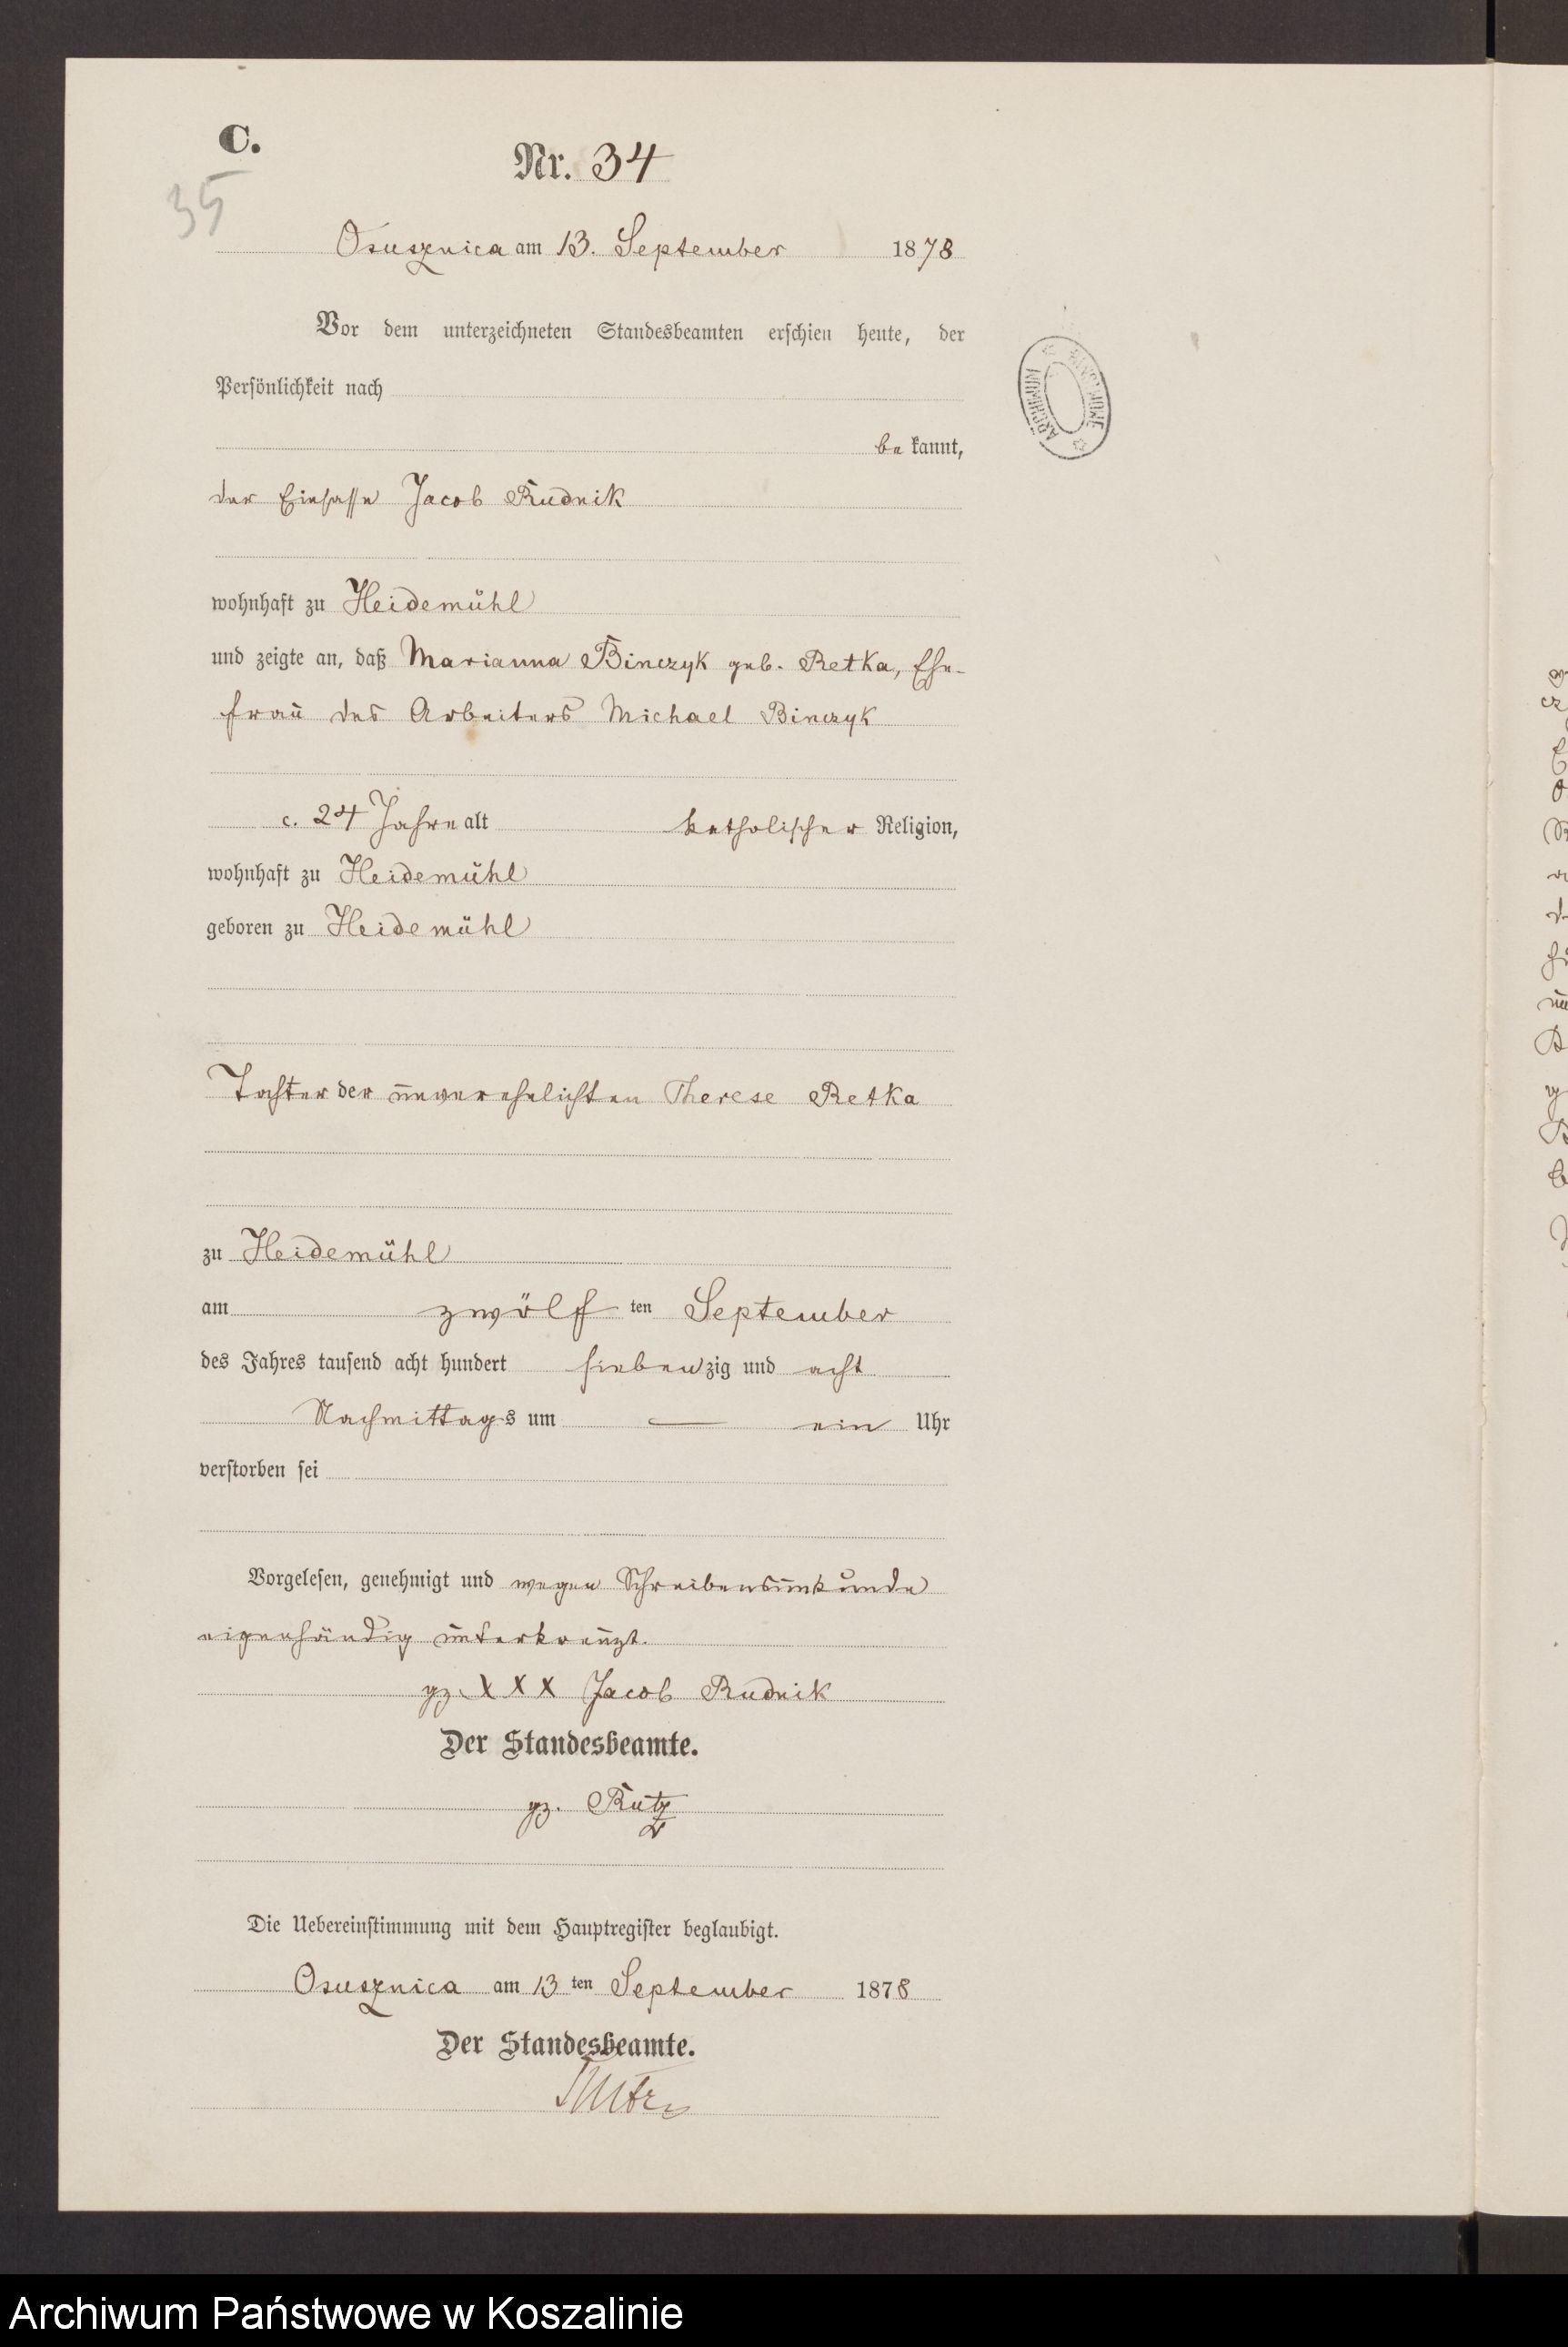 C.
Nr. 34
35
Osusznica am 13. September 1878
Vor dem unterzeichneten Standesbeamten erschien heute, der
Persönlichkeit nach
bekannt,
der Einsasse Jacob Rudnik
wohnhaft zu Heidemühl
und zeigte an, daß Marianna Binczyk geb. Retka, Ehe-
frau des Arbeiters Michael Binczyk
c. 24 Jahre alt katholischer Religion,
wohnhaft zu Heidemühl
geboren zu Heidemühl
Tochter der unverehelichten Therese Retka
zu Heidemühl
am zwölften September
des Jahres tausend acht hundert siebenzig und acht
Nachmittags um — ein Uhr
verstorben sei
Vorgelesen, genehmigt und wegen Schreibensunkunde
eigenhändig unterkreuzt.
gz. XXX Jacob Rudnik
Der Standesbeamte.
gz. Rutz
Die Uebereinstimmung mit dem Hauptregister beglaubigt.
Osusznica am 13ten September 1878
Der Standesbeamte.
Rutz
ARCHIWUM PAŃSTWOWE
Archiwum Państwowe w Koszalinie